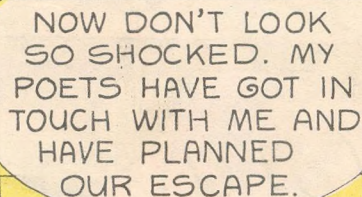 NOW DON'T LOOK
SO SHOCKED. MY
POETS HAVE GOT IN
TOUCH WITH ME AND
HAVE PLANNED
OUR ESCAPE.